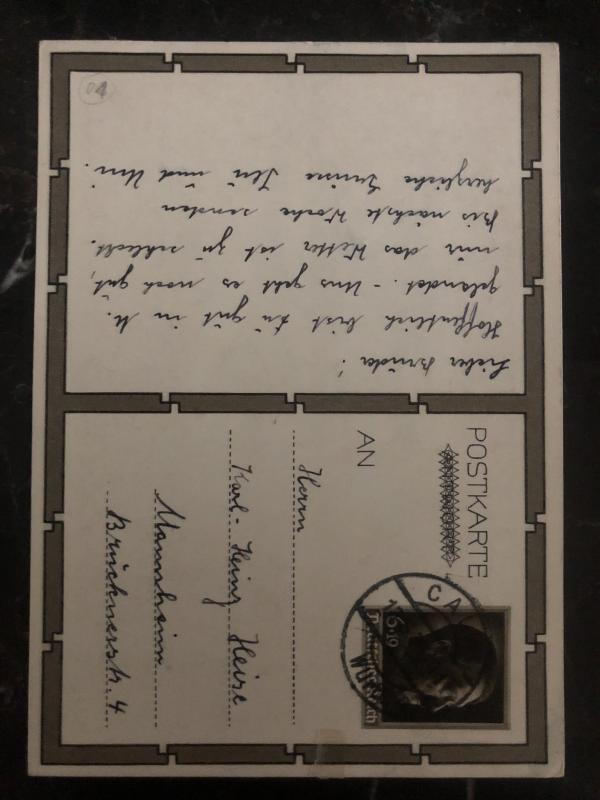 04
Lieber Bruder!
Hoffentlich bist Du gut in M.
gelandet. – Uns geht es noch gut,
nur das Wetter ist zu schlecht.
Bis nächste Woche senden
herzliche Grüsse Ilu und Uli.
POSTKARTE
AN
Herrn
Karl-Heinz Heise
Mannheim
Brucknerstr. 4
CA
16.10
WÜ
Deutsches Reich